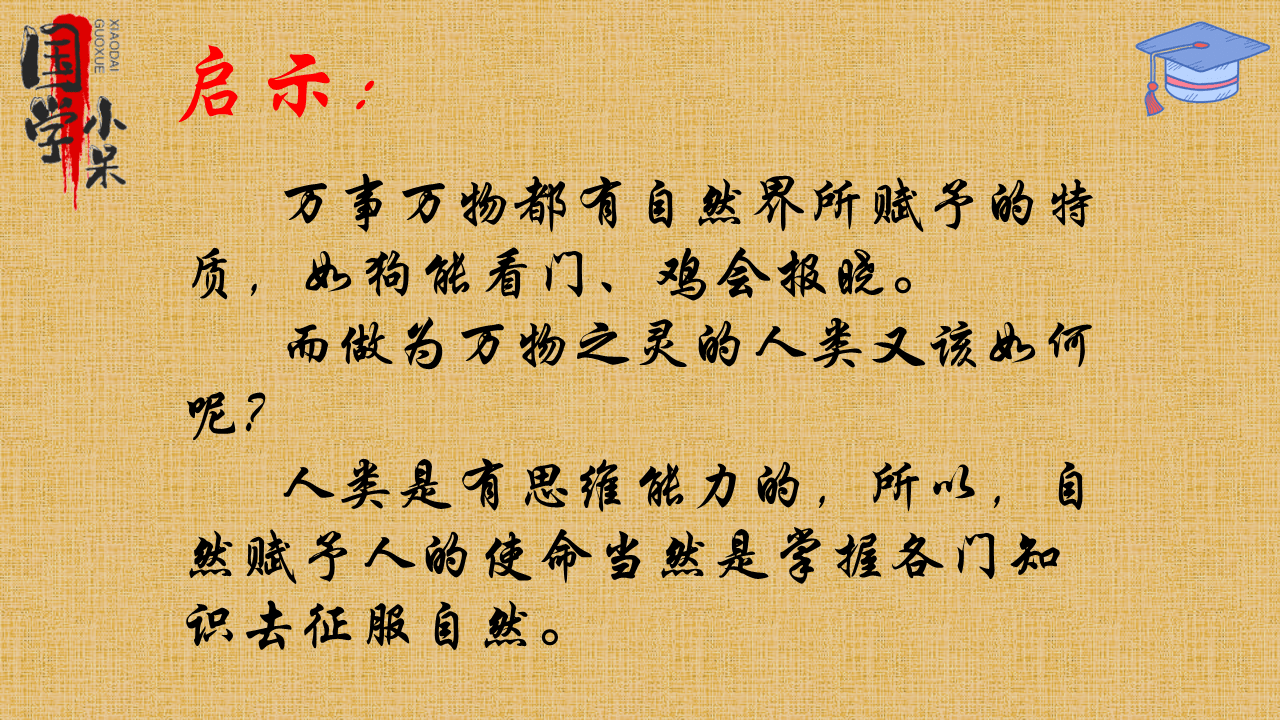 国学
小呆
XIAODAI
GUOXUE
启示：
万事万物都有自然界所赋予的特
质，如狗能看门、鸡会报晓。
而做为万物之灵的人类又该如何
呢？
人类是有思维能力的，所以，自
然赋予人的使命当然是掌握各门知
识去征服自然。